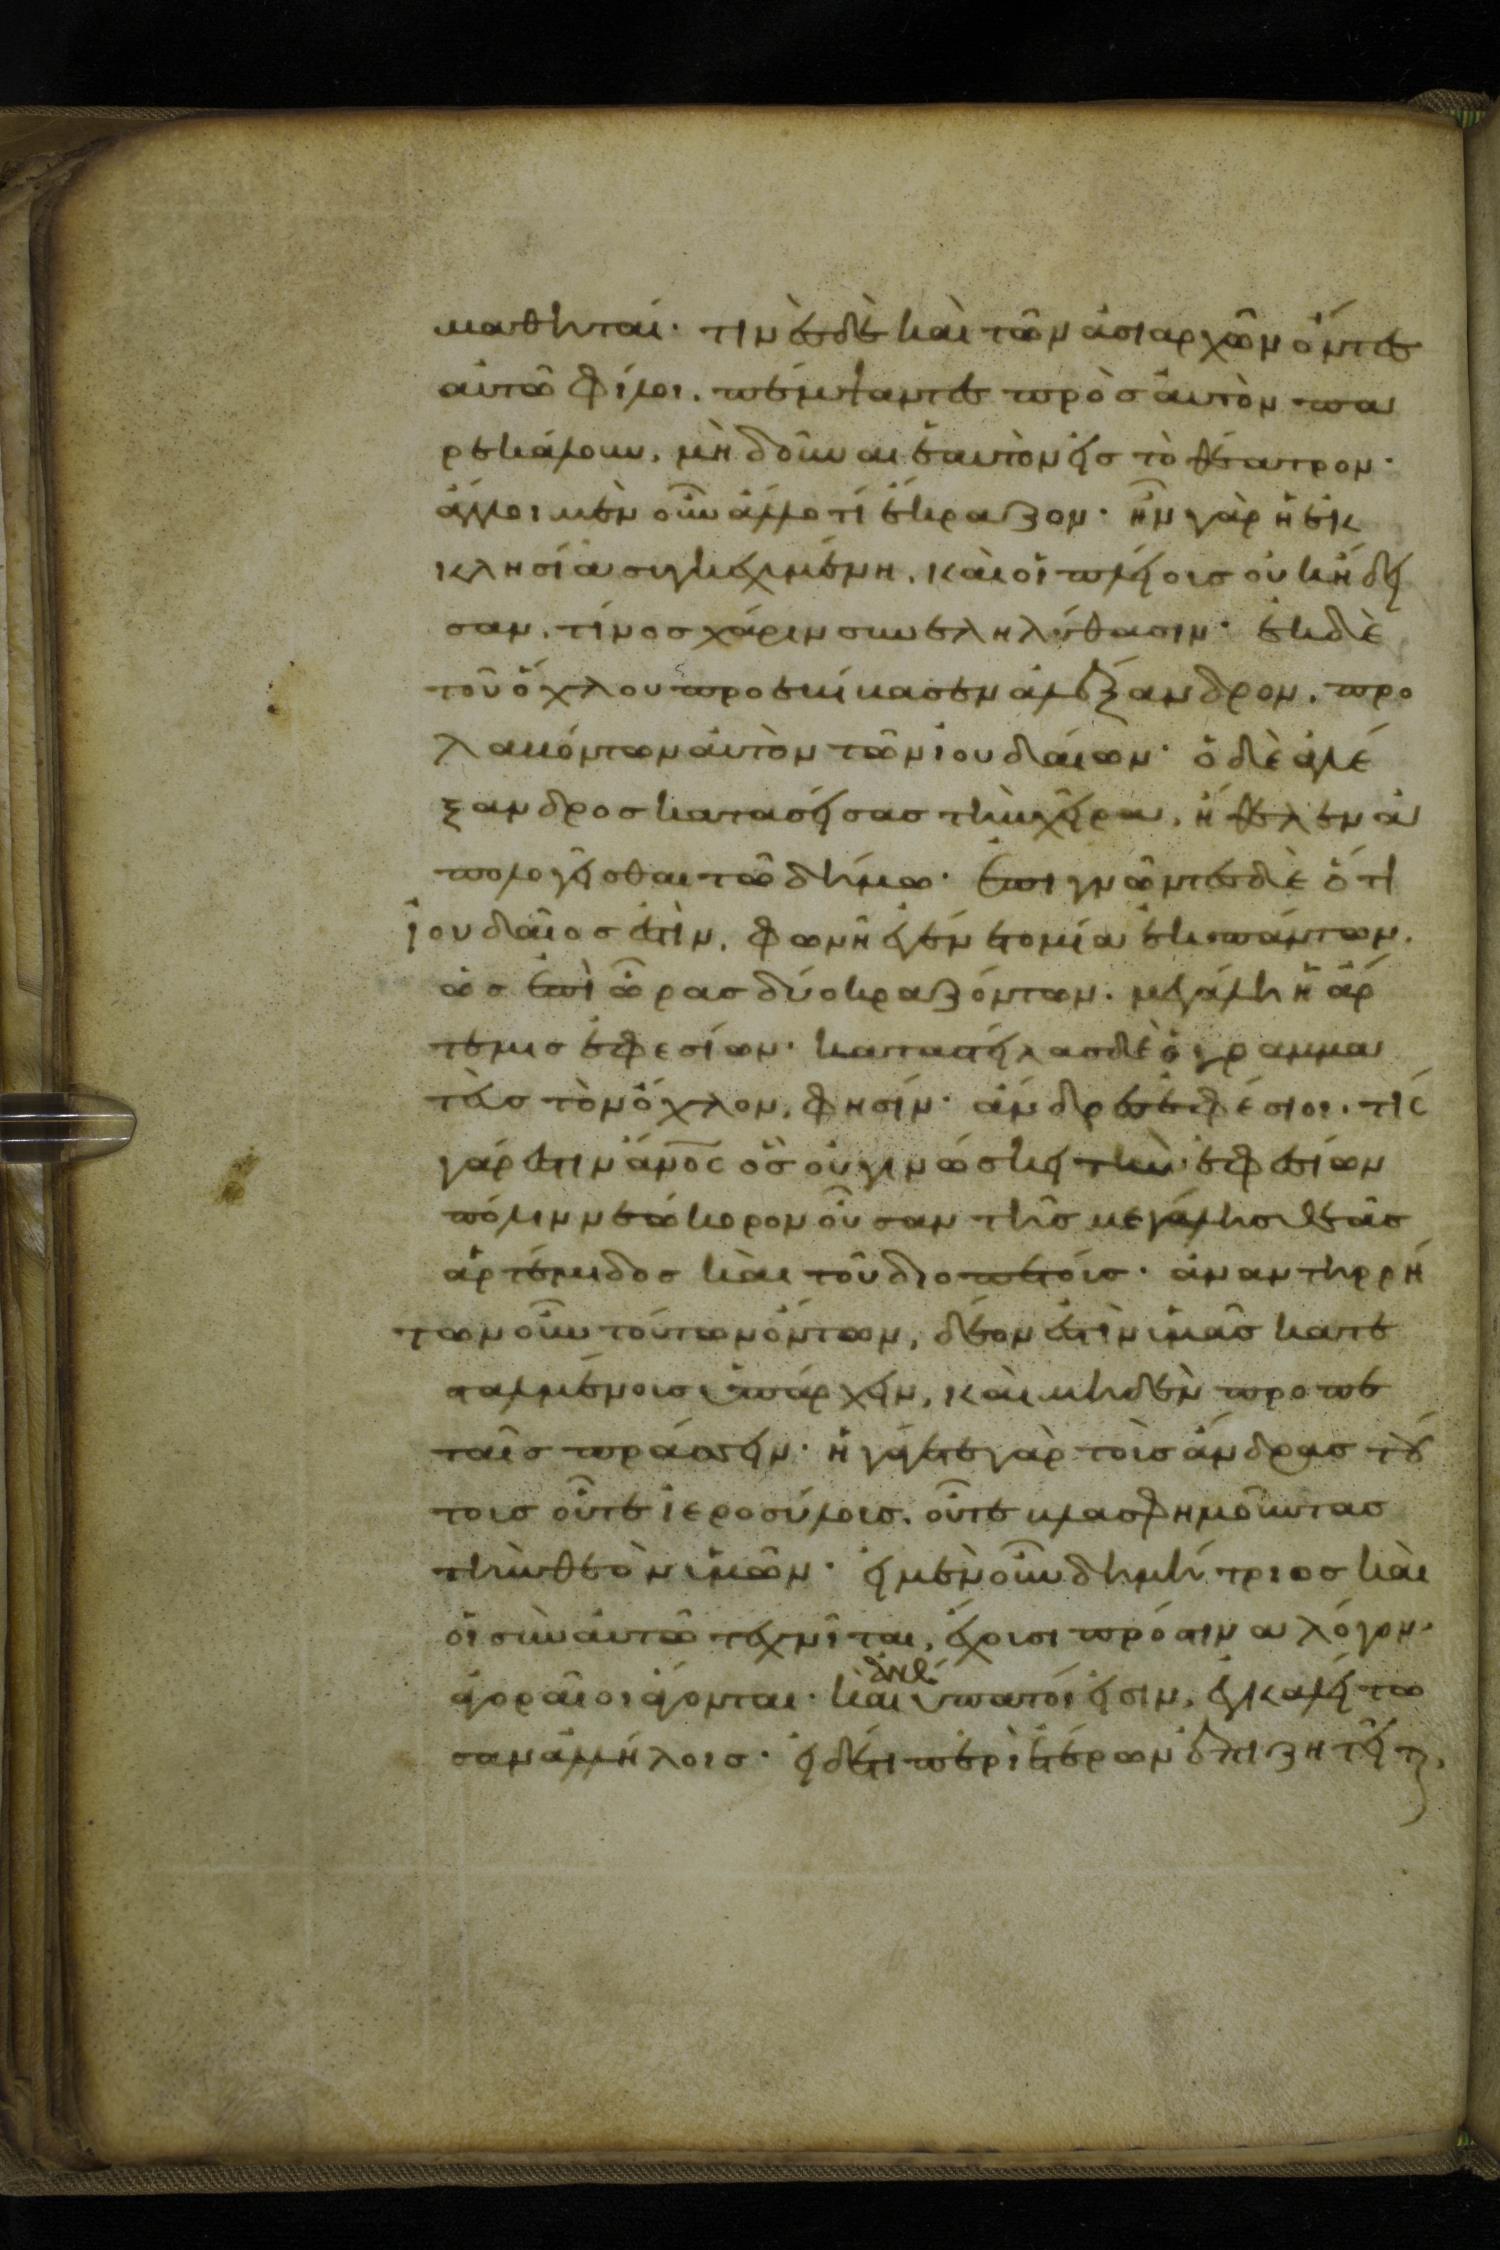 μαθηταί· τινὲς δὲ καὶ τῶν ἀσιαρχῶν ὄντες
αὐτῶ φίλοι. πέμψαντες πρὸς αὐτὸν πα
ρεκάλουν, μὴ δοῦναι ἑαυτὸν εἰς τὸ θέατρον·
ἄλλοι μὲν οὖν ἄλλο τί ἔκραζον· ἦν γὰρ ἡ ἐκ
κλησία συγκεχυμένη, καὶ οἱ πλείους οὐκ ἤδει
σαν, τίνος χάριν συνεληλύθασιν· ἐκ δὲ
τοῦ ὄχλου προεβίβασεν ἀλέξανδρον, προ
βαλόντων αὐτὸν τῶν ἰουδαίων· ὁ δὲ ἀλέ
ξανδρος κατασείσας τὴν χεῖρα, ἤθελεν ἀ
πολογεῖσθαι τῶ δήμω· ἐπιγνῶντες δὲ ὅτι
ἰουδαῖος ἐστὶν, φωνὴ ἐγένετο μία ἐκ πάντων,
ὡς ἐπὶ ὥρας δύο κραζόντων. μεγάλη ἡ ἄρ
τεμις ἐφεσίων· καταστείλας δὲ ὁ γραμμα
τεὺς τὸν ὄχλον, φησίν· ἄνδρες ἐφέσιοι. τίς
γάρ ἐστιν ἄνος ὃς οὐ γινώσκει τὴν ἐφεσίων
πόλιν νεώκορον οὖσαν τῆς μεγάλης θεᾶς
ἀρτέμιδος καὶ τοῦ διοπετοῦς· ἀναντιρρή
των οὖν τούτων ὄντων, δέον ἐστὶν ὑμᾶς κατε
σταλμένους ὑπάρχειν, καὶ μηδὲν προπε
τὲς πράσσειν· ἠγάγετε γὰρ τοὺς ἄνδρας τού
τους οὔτε ἱεροσύλους. οὔτε βλασφημοῦντας
τὴν θεὸν ὑμῶν· εἰ μὲν οὖν δημήτριος καὶ
οἱ σὺν αὐτῶ τεχνῖται, ἔχουσι πρός τινα λόγον·
ἀγοραῖοι ἄγονται· καὶ ἀνθύπατοί εἰσιν, ἐγκαλείτω
σαν ἀλλήλοις· εἰ δέ τι περὶ ἑτέρων ἐπιζητεῖτε,